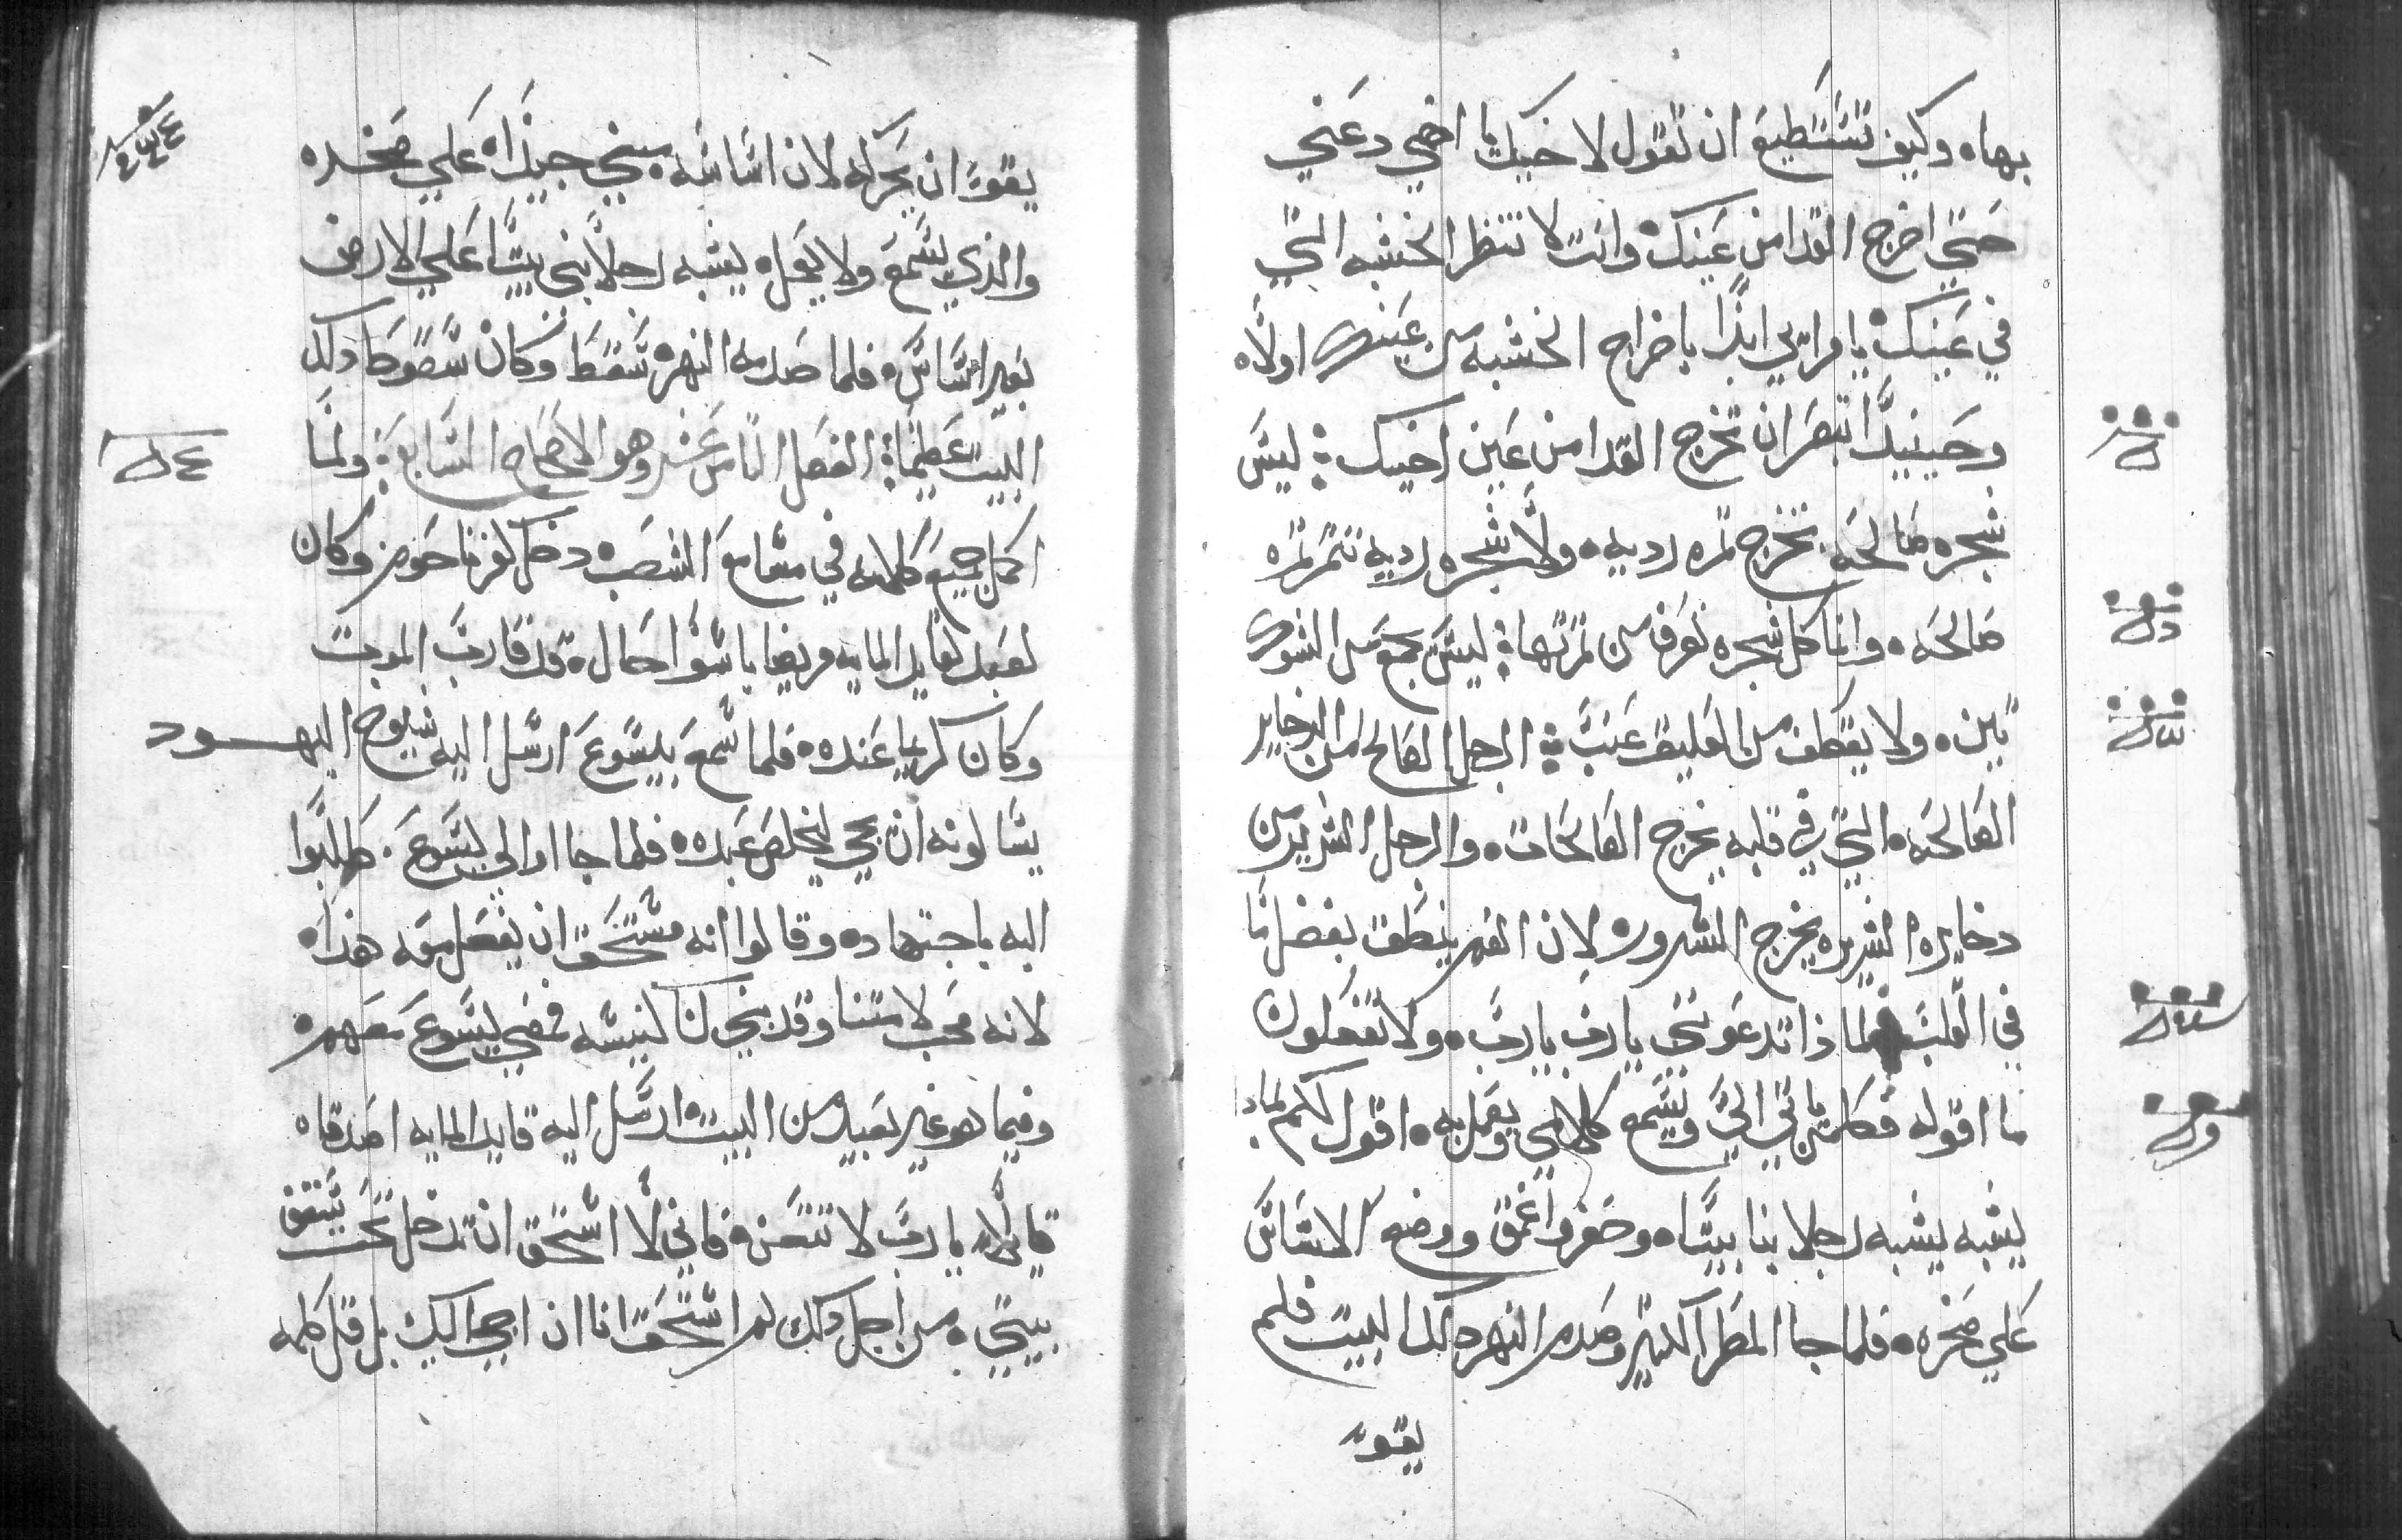 بها ه وكيف تستطيع ان تقول لاخيك يا اخي دعني
حتي اخرج القدا من عينك وانت لا تنظر الخشبه التي
في عينك يا مرايي ابدا باخراج الخشبه من عينك اولا ه
وحينيد انتبصر ان تخرج القدا من عين اخيك ؛ ليس
شجره صالحه تخرج ثمره رديه ه ولا شجره رديه تتمر ثمره
صالحه ه وانا كل شجره تعرف من ثمرتها ؛ ليس يجمع من الشوك
تين ه ولا يقطف من العليق عنب ؛ الرجل الصالح من الدخاير
الصالحه ه التي في قلبه يخرج الصالحات ه والرجل الشرير من
دخايره الشريره يخرج الشرور ه لان الفم ينطق بفضل ما
في القلب فلما ذا تدعونني يا رب يا رب ه ولا تفعلون
ما اقوله فكل من ياتي الي ويسمع كلامي ويعمل به ه اقول لكم لماذا
يشبه يشبه رجلا بنا بيتا ه وحفر واعمق ووضع الاساس
علي صخره ه فلما جا المطر الكثير وصدم النهر دلك البيت فلم
يقو
يقو ان يحركه لان اساسه بني جيدا ه علي صخره
والذي يسمع ولا يعمل ه يشبه رجلا بني بيتا علي الارض
بغير اساس ه فلما صدمه النهر ه سقط وكان سقوط دلك
البيت عظيما ؛ الفصل الثامن عشر وهو الاصحاح السابع ؛ ولما
اكمل جميع كلامه في مسامع الشعب ه دخل كفرناحوم وكان
لعبد لقايد المايه مريضا باسوا حال ه قد قارب الموت
وكان كريما عنده ه فلما سمع بيسوع ارسل اليه شيوخ اليهود
يسالونه ان يجي ليخلص عبده ه فلما جاا والي يسوع . طلبوا
اليه باجتهاد ه وقالوا انه مستحق ان يفعل معه هذا ه
لانه محب لامتنا وقد بني لنا كنيسه فمضي يسوع معهم ه
وفيما هو غير بعيد من البيت ه ارسل اليه قايد المايه اصدقاه
قايلا ه يا رب لا تتعن ه فاني لا استحق ان تدخل تحت سقف
بيتي ه من اجل دلك لم استحق انا ان اجي اليك بل قل كلمه